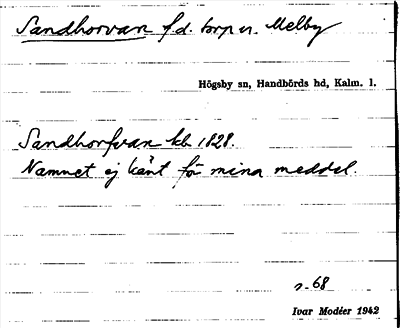 Sandhorvan f.d. torp u. Melby
Högsby sn, Handbörds hd, Kalm. l.
Sandhorfvan kb 1828.
Namnet ej känt för mina meddel.
s. 68
Ivar Modéer 1942